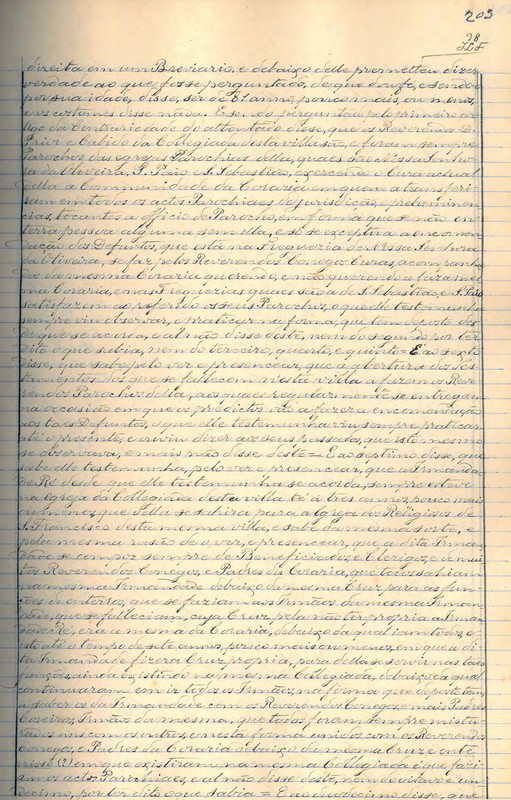 203
98
direita em um Breviario, e debaixo delle prometteu dizer
verdade ao que fosse perguntado, de que dou fe, e sendo
por sua idade, disse, ser de 81 anno, pouco mais, ou menos,
e os costumes disse nada. E sendo perguntado pelo primeiro ar-
tigo da Contrariedade do attentado disse, que os Reverendos D.
Prior e Cabido da Collegiada desta villa são, e foram sempre
Parochos das egrejas Parochiaes della, quaes são Nossa Senho-
ra da Oliveira, S. Paio e S. Sebastião, exercendo o Cura actual
della a Communidade da Coraria em quem a transferi-
ram em todos os actos Parochiaes de jurisdicção, e preheminen-
cias, tocantes a officio de Parocho, em forma que se não en-
terra pessoa alguma sem ella, e só se exceptua a encomen-
dação dos Defuntos, que está na Freguezia de Nossa Senhora
da Oliveira, se faz pelos Reverendos Conegos Curas, acompanha-
dos da mesma Coraria querendo, e não querendo a faz a mes-
ma Coraria, e nas Freguezias quaes são a de S. Sebastião, e S. Paio
satisfazem ao referido os seus Parochos, o que elle testemunha
sempre viu observar, e praticar na forma, que tem deposto des-
de que se acorda, e al não disse deste, nem do segundo por ter
dito o que sabia, nem do terceiro, quarto, e quinto = E ao sexto
disse, que sabe pelo ver e presencear, que a abertura dos tes-
tamentos dos que se fallecem nesta villa a fazem os Reve-
rendos Parochos della, aos quaes regularmente se entregam
na occasião em que os predictos vão a fazer a encomendação
aos taes Defuntos, o que elle testemunha viu sempre praticar
até o presente, e ouviu dizer aos seus passados, que isto mesmo
se observava, e mais não disse deste = E ao septimo disse, que
sabe elle testemunha, pelo ver e presencear, que a Irmanda-
de Ré desde que elle testemunha se acorda, sempre esteve
na Igreja da Collegiada desta villa té á tres annos, pouco mais
ou menos, que della se sahira para a Igreja dos Religiosos de
S. Francisco desta mesma villa, e sabe da mesma sorte, e
pela mesma rasão de o ver, e presencear, que a dita Irman-
dade se compoz sempre de Beneficiados, e Clerigos, e de mui-
tos Reverendos Conegos, e Padres da Coraria, que todos sahiam
na mesma Irmandade debaixo da mesma Cruz para as fun-
ções de enterros, que se faziam aos Irmãos da mesma Irman-
dade, que se falleciam, cuja Cruz pela não ter propria a Irman-
dade Ré, era a mesma da Coraria, debaixo da qual iam todos, e
isto até ao tempo de sete annos, pouco mais ou menos, em que a di-
ta Irmandade fizera Cruz propria, para della se servir nas taes
funções, ainda existindo na mesma Collegiada, debaixo da qual
continuaram em ir todos os Irmãos, na forma que deposto tem,
a saber os da Irmandade com os Reverendos Conegos, e mais Padres
Coreiros, Irmãos da mesma, que todos foram sempre mistu-
rados uns com os outros, e nesta forma unidos com os Reverendos
Conegos, e Padres da Coraria debaixo da mesma Cruz e ente-
nisso (?) em que existiram, na mesma Collegiada é que fazi-
am os actos Parochiaes, e al não disse deste, nem do oitavo e un-
decimo, por ter dito o que sabia = E ao duodecimo disse, que